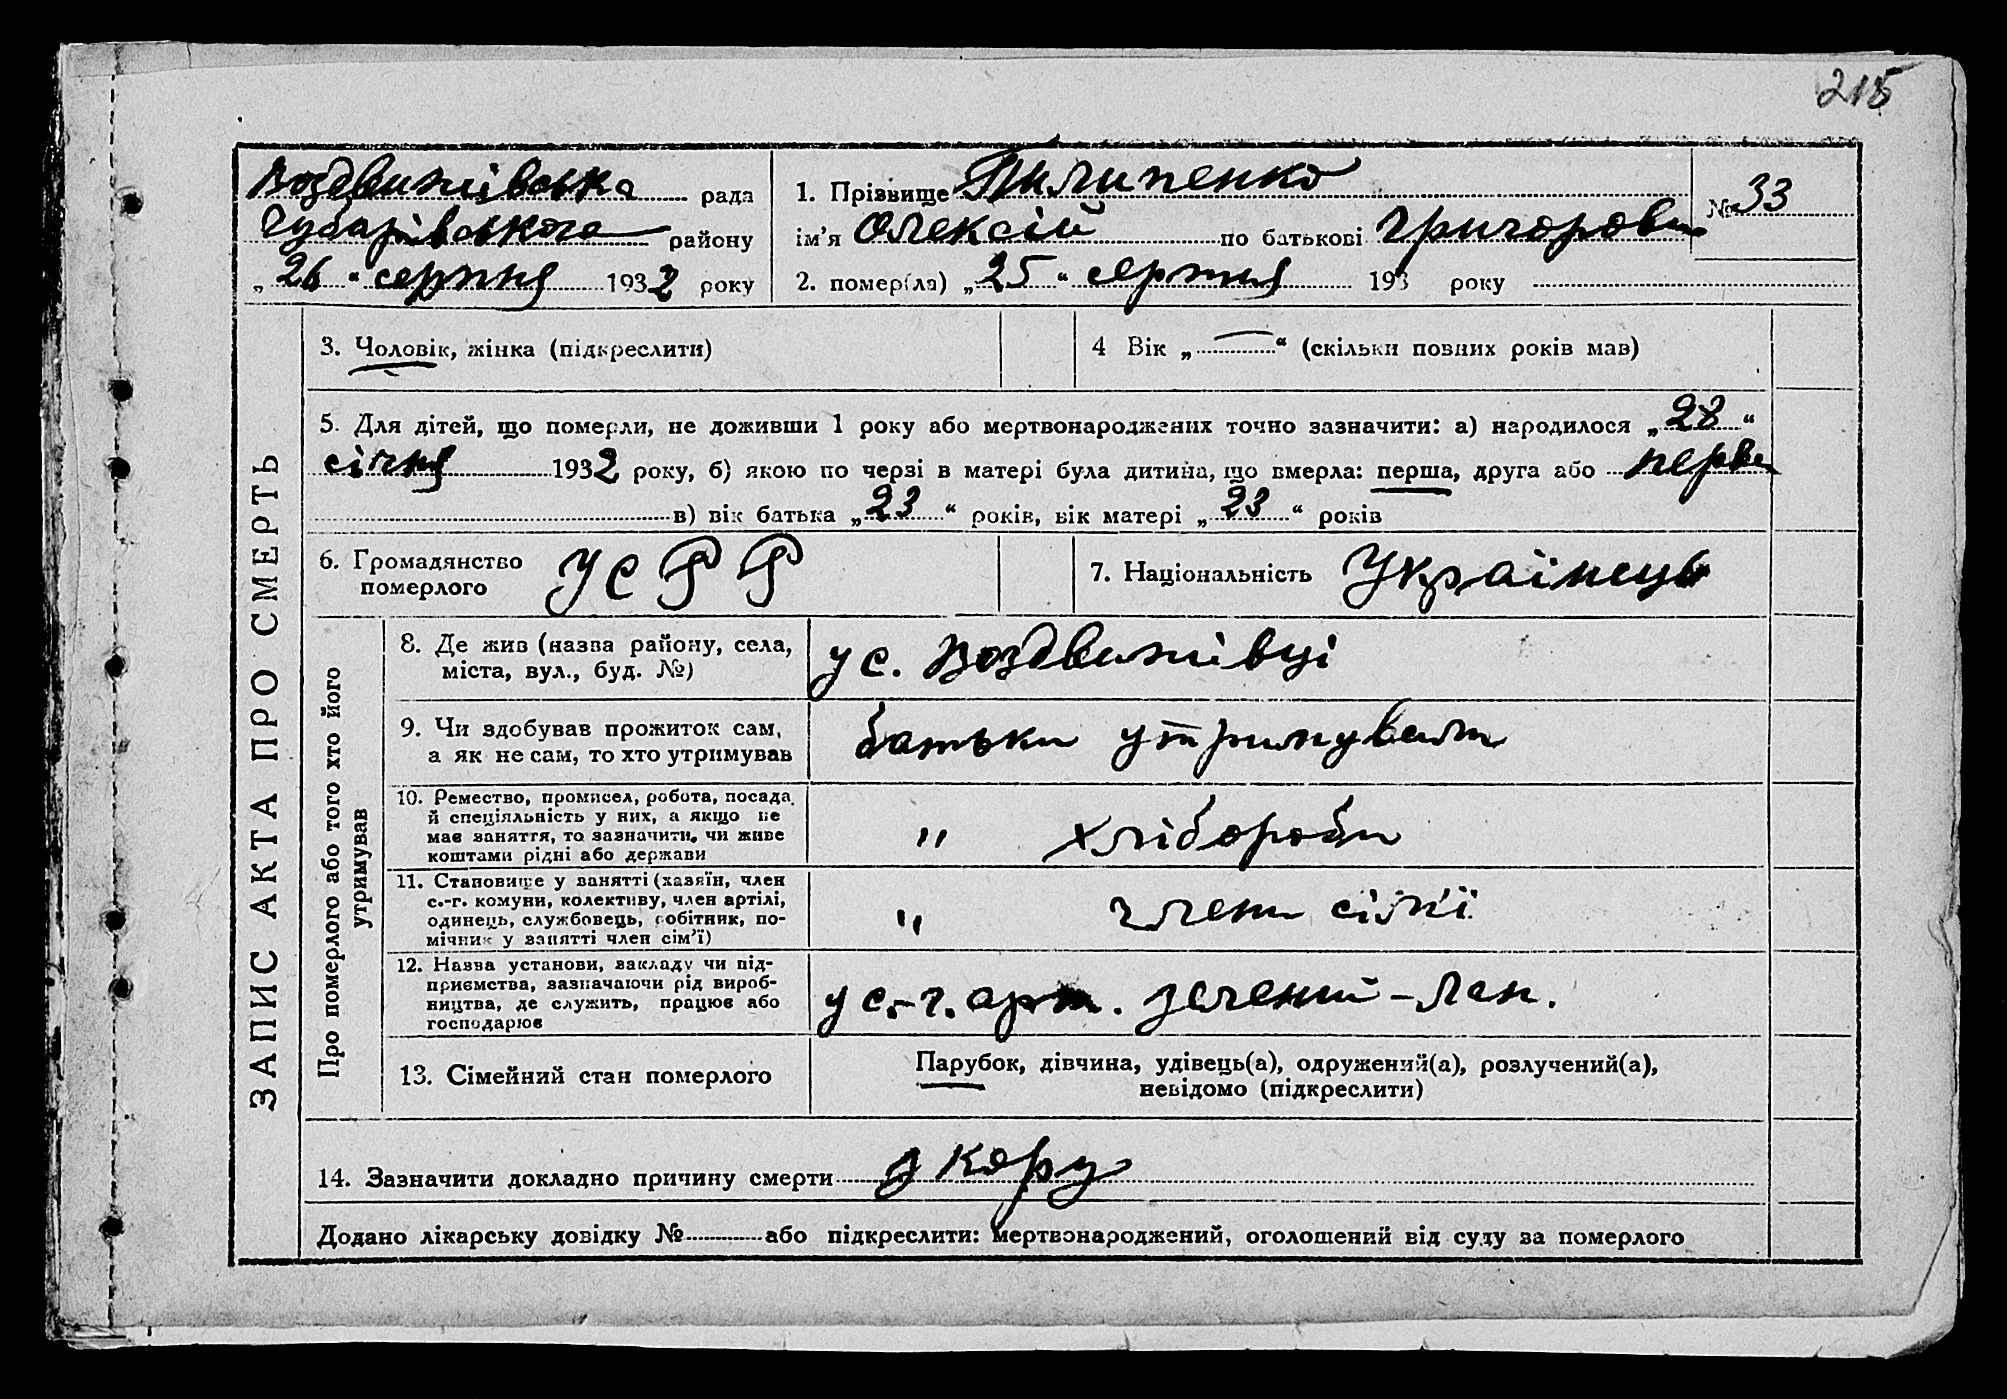 215
Воздвижівська рада
Чубарівського району
„26“ серпня 1932 року
1. Прізвище Пилипенко
№ 33
ім’я Олексій по батькові Григорови
2. помер(ла) „25“ серпня 193 року
3. Чоловік, жінка (підкреслити)
4 Вік „—“ (скільки повних років мав)
5. Для дітей, що померли, не доживши 1 року або мертвонароджених точно зазначити: а) народилося „28“
січня 1932 року, б) якою по черзі в матері була дитина, що вмерла: перша, друга або перва
в) вік батька „23“ років, вік матері „23“ років
6. Громадянство
померлого УСРР
7. Національність Українець
ЗАПИС АКТА ПРО СМЕРТЬ
Про померлого або того хто його
утримував
8. Де жив (назва району, села,
міста, вул., буд. №)
у с. Воздвижівці
9. Чи здобував прожиток сам,
а як не сам, то хто утримував
батьки утримували
10. Ремество, промисел, робота, посада
й спеціяльність у них, а якщо не
має заняття, то зазначити, чи живе
коштами рідні або держави
" хлібороби
11. Становище у занятті (хазяїн, член
с.-г. комуни, колективу, член артілі,
одинець, службовець, робітник, по-
мічник у занятті член сім’ї)
" члени сім'ї
12. Назва установи, закладу чи під-
приємства, зазначаючи рід вироб-
ництва, де служить, працює або
господарює
у с.-г. арт. зелений-лан.
13. Сімейний стан померлого
Парубок, дівчина, удівець(а), одружений(а), розлучений(а),
невідомо (підкреслити)
14. Зазначити докладно причину смерти з кору
Додано лікарську довідку № або підкреслити: мертвонароджений, оголошений від суду за померлого